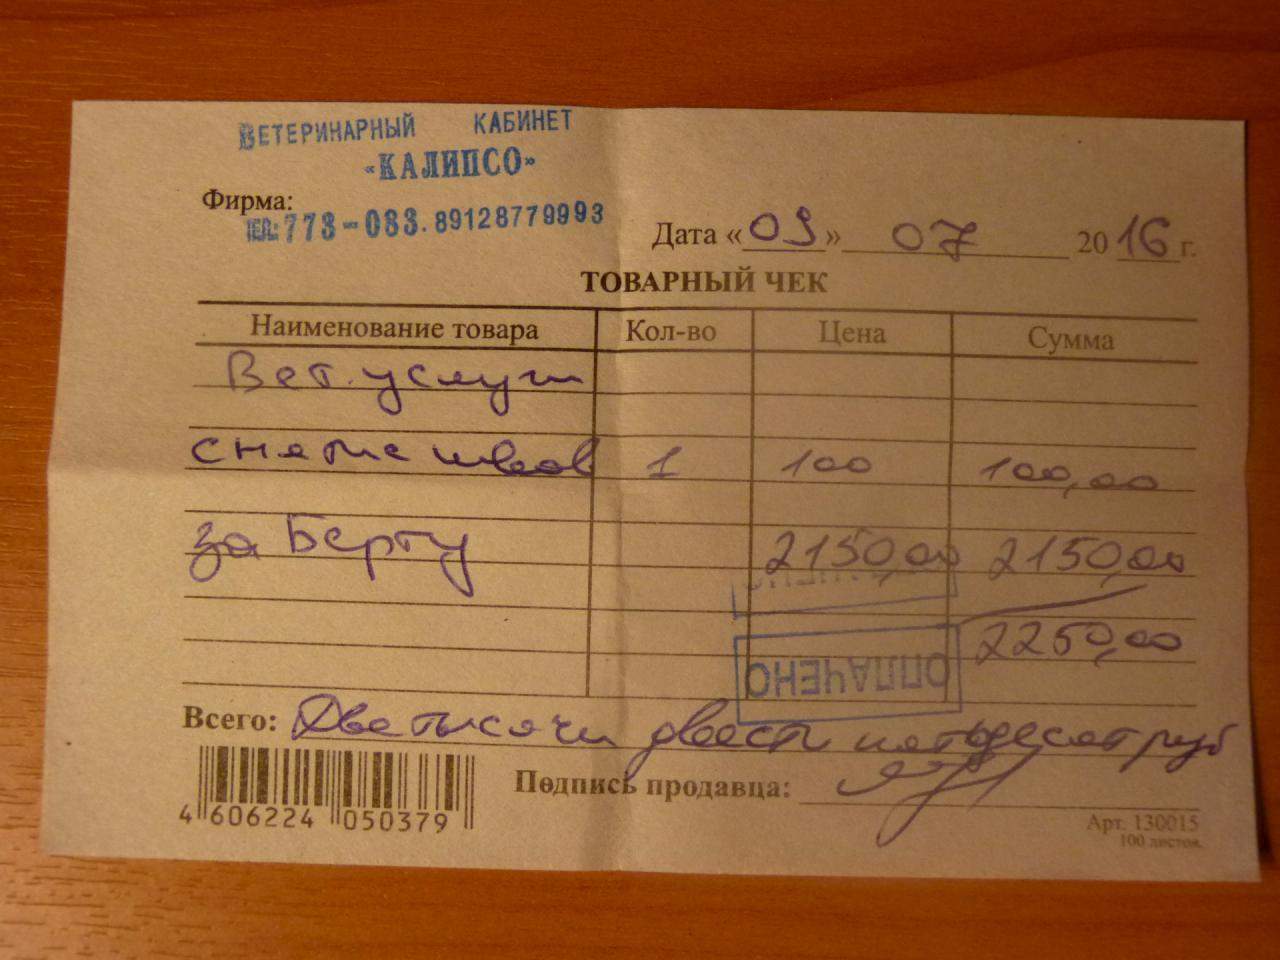 ВЕТЕРИНАРНЫЙ КАБИНЕТ
«КАЛИПСО»
Фирма:
ТЕЛ.: 773-083. 89128779993
Дата «09» 07 2016 г.
ТОВАРНЫЙ ЧЕК
Наименование товара Кол-во Цена Сумма
Вет. услуги
снятие швов 1 100 100,00
за Берту 2150,00 2150,00
2250,00
ОПЛАЧЕНО
Всего: Две тысячи двести пятьдесят руб
Подпись продавца:
4 606224 050379
Арт. 130015
100 листов.